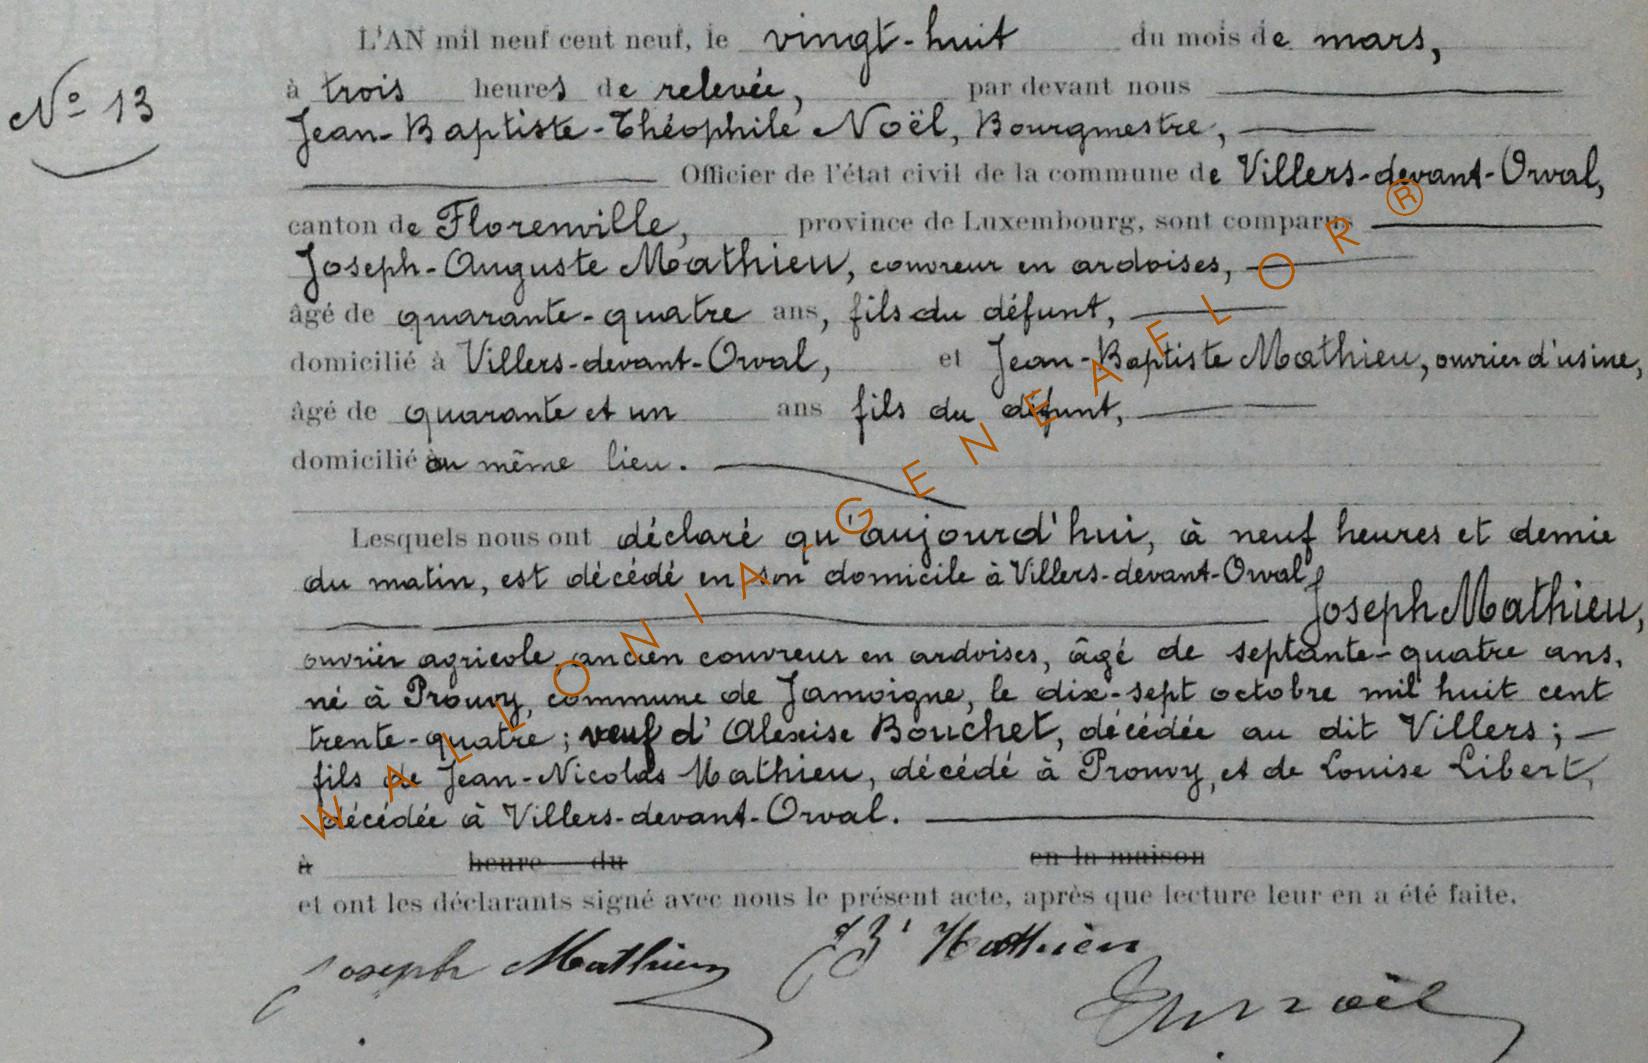 L'AN mil neuf cent neuf, le vingt-huit du mois de mars,
N° 13
à trois heures de relevée, par devant nous
Jean-Baptiste-Théophile Noël, Bourgmestre,
Officier de l'état civil de la commune de Villers-devant-Orval,
canton de Florenville, province de Luxembourg, sont comparus
Joseph-Auguste Mathieu, couvreur en ardoises,
âgé de quarante-quatre ans, fils du défunt,
domicilié à Villers-devant-Orval, et Jean-Baptiste Mathieu, ouvrier d'usine,
âgé de quarante et un ans fils du défunt,
domicilié au même lieu.
Lesquels nous ont déclaré qu'aujourd'hui, à neuf heures et demie
du matin, est décédé en son domicile à Villers-devant-Orval
Joseph Mathieu,
ouvrier agricole, ancien couvreur en ardoises, âgé de septante-quatre ans,
né à Prouvy, commune de Jamoigne, le dix-sept octobre mil huit cent
trente-quatre; veuf d'Alexise Bouchet, décédée au dit Villers;
fils de Jean-Nicolas Mathieu, décédé à Prouvy, et de Louise Libert,
décédée à Villers-devant-Orval.
à heure du en la maison
et ont les déclarants signé avec nous le présent acte, après que lecture leur en a été faite.
Joseph Mathieu JBt Mathieu
Noël
WALLONIA-GENEAFLOR®